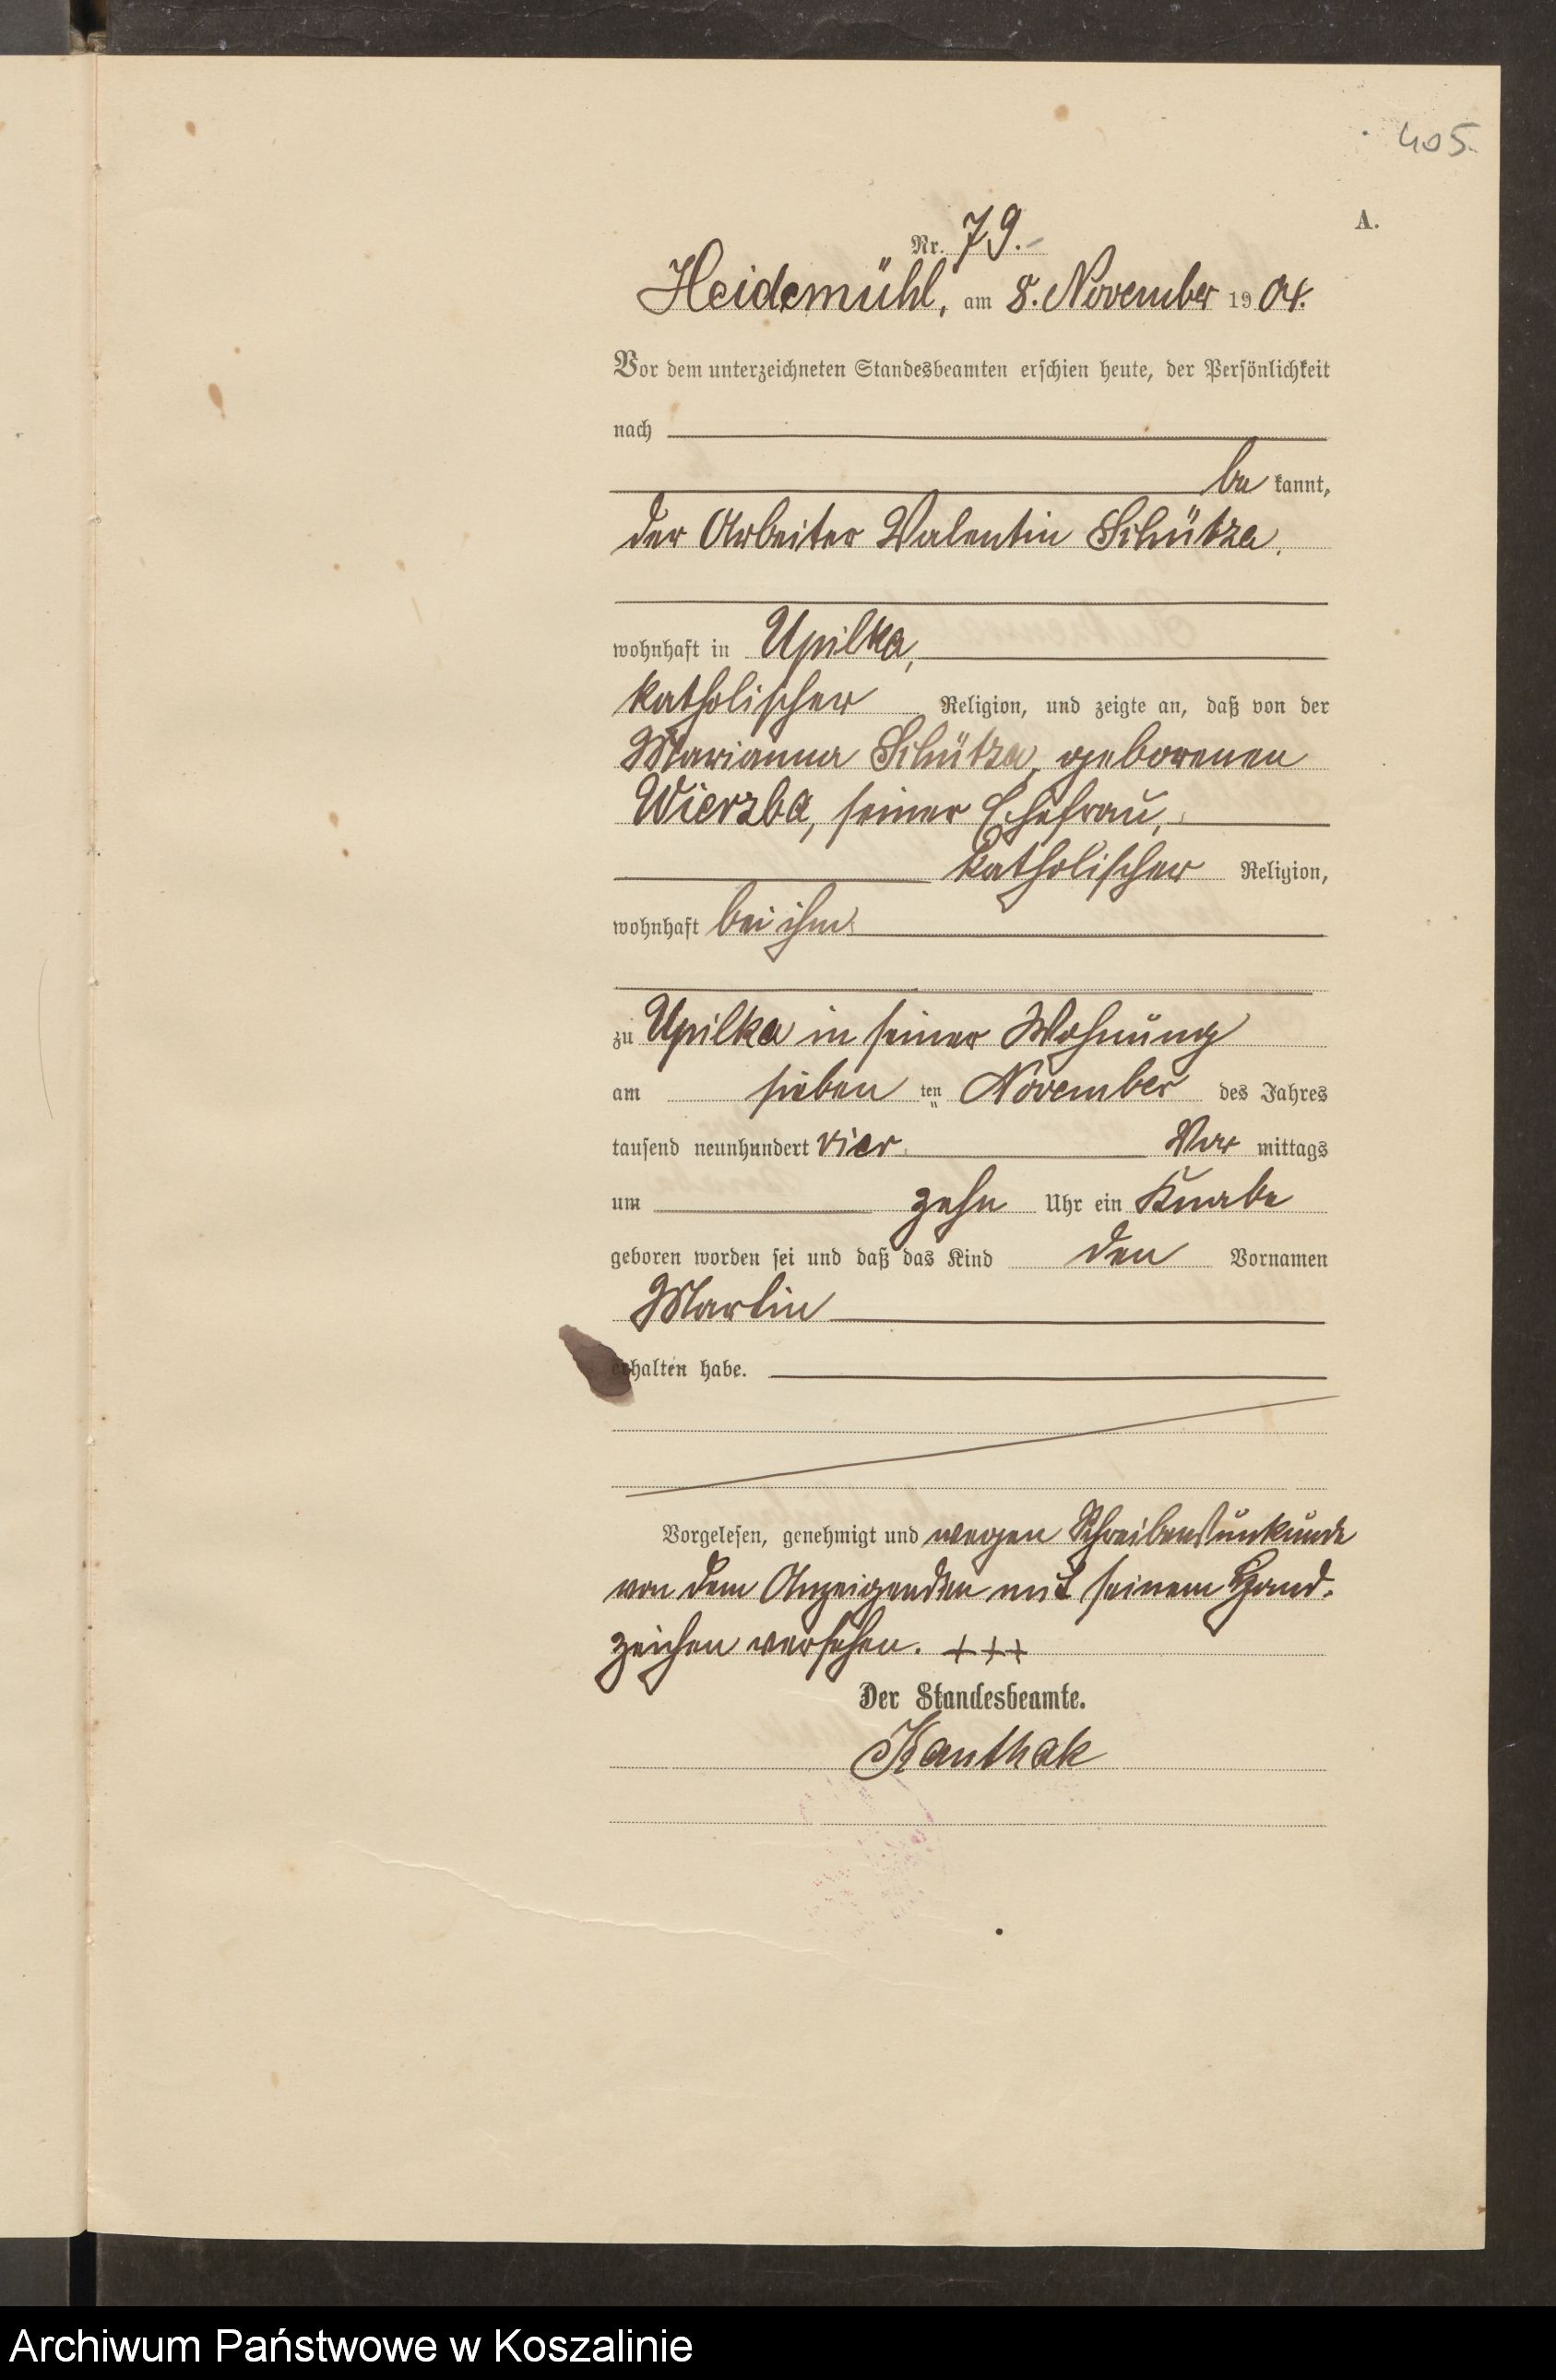 405.
A.
Nr. 79.-
Heidemühl, am 8. November 1904.
Vor dem unterzeichneten Standesbeamten erschien heute, der Persönlichkeit
nach
be kannt,
der Arbeiter Valentin Schütza,
wohnhaft in Upilka,
katholischer Religion, und zeigte an, daß von der
Marianna Schütza, geborenen
Wierzba, seiner Ehefrau,
katholischer Religion,
wohnhaft bei ihm
zu Upilka in seiner Wohnung
am sieben ten November des Jahres
tausend neunhundert vier Vor mittags
um zehn Uhr ein Knabe
geboren worden sei und daß das Kind den Vornamen
Martin
erhalten habe.
Vorgelesen, genehmigt und wegen Schreibensunkunde
von dem Anzeigenden mit seinem Hand-
zeichen versehen. +++
Der Standesbeamte.
Kanthak
Archiwum Państwowe w Koszalinie